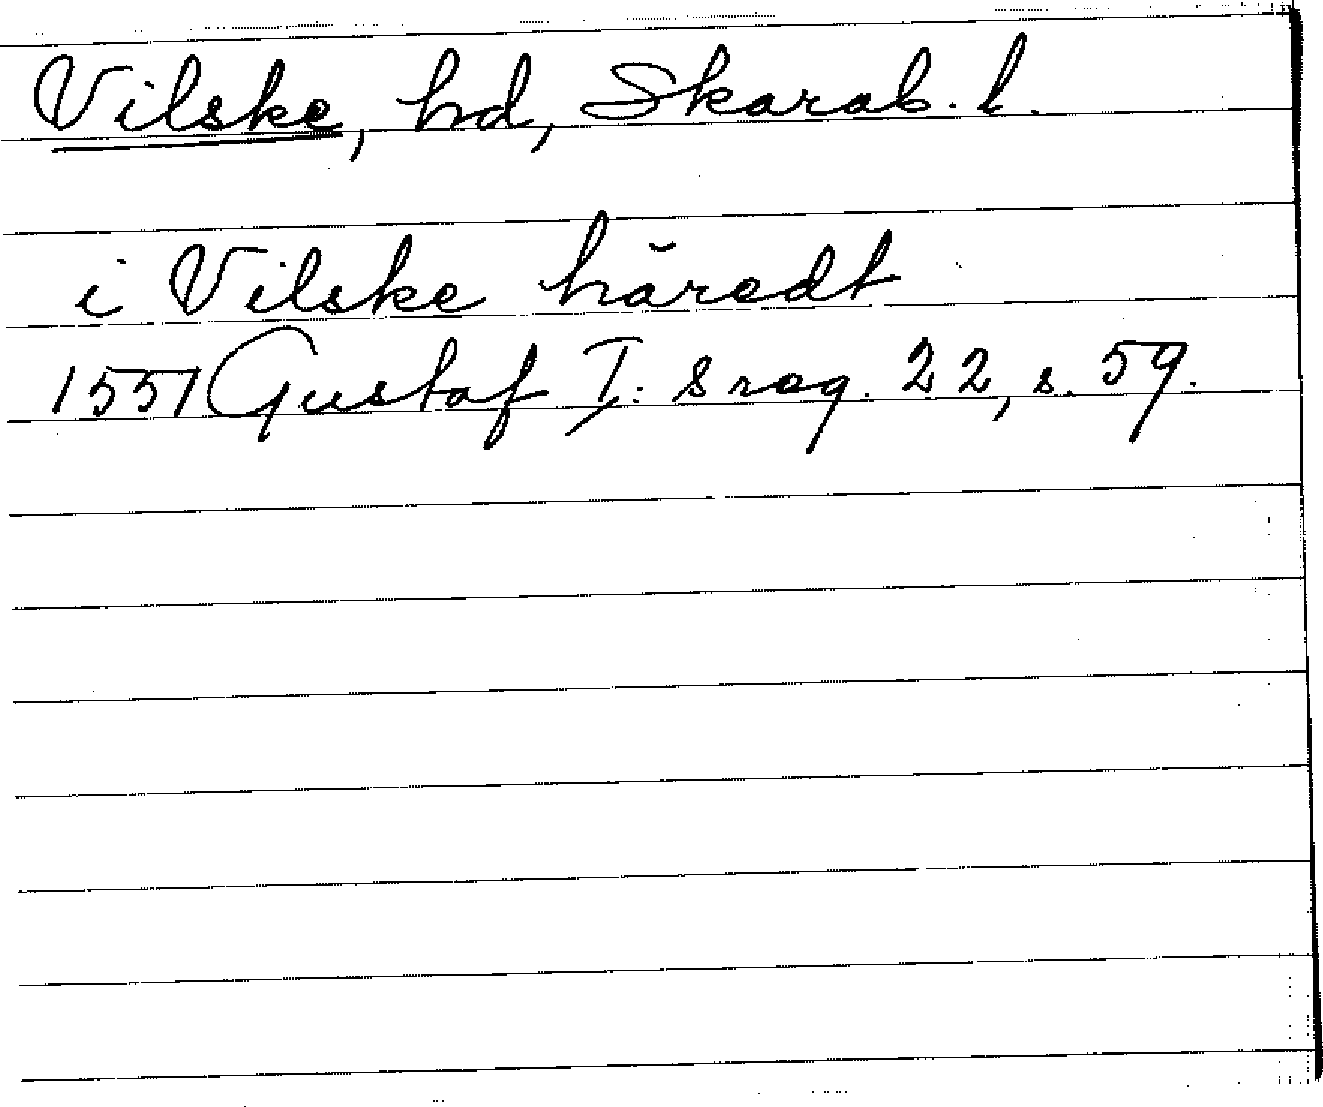 Vilske, hd, Skarab. l.
i Vilske häredt
1551 Gustaf I: s reg. 22, s. 59.